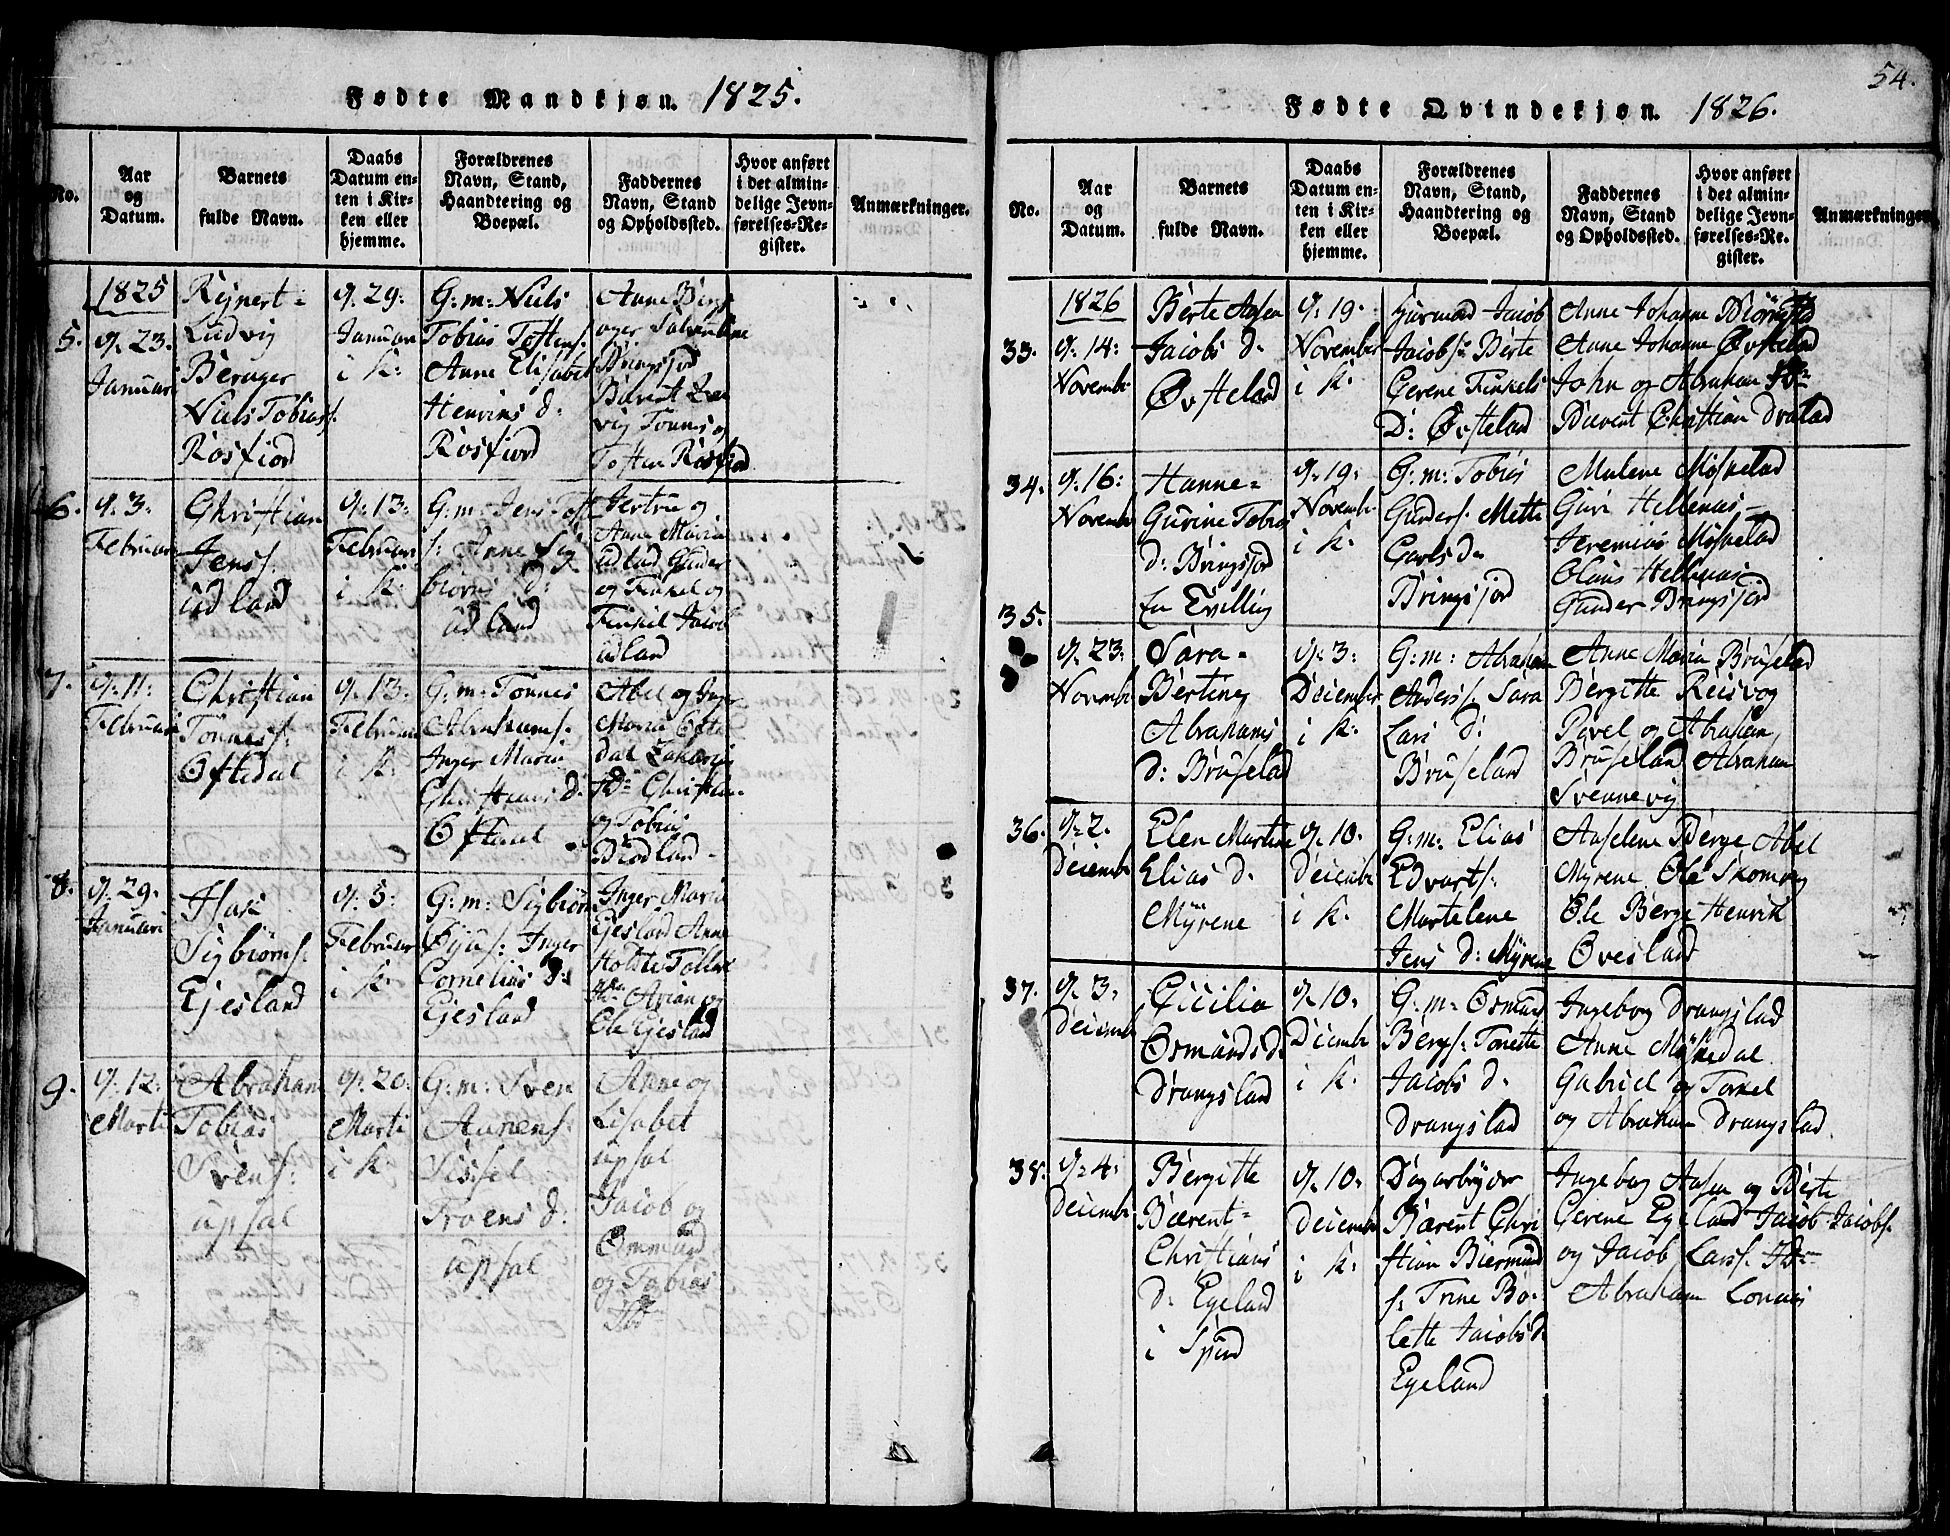 Fødte Mandkjøn. 1825.
No.
Aar
og
Datum.
Barnets
fulde Navn.
Daabs
Datum en-
ten i Kir-
ken eller
hjemme.
Forældrenes
Navn, Stand,
Haandtering og
Boepæl.
Faddernes
Navn, Stand
og Opholdssted.
Hvor anført
i det almin-
delige Jevn-
førelses-Re-
gister.
Anmærkninger.
5.
1825
d. 23.
Januari
Reinert-
Ludvig
Berager
Niels Tobiass.
Rosfiord
d. 29.
Januari
i K.
G: m: Niels
Tobias Toftens.
Anne Elisabet
Henrics d.
Rosfiord
Anne Berg
Bringsjord
Tønnes og
Toften Rosfiord
6.
d. 3.
Februari
Christian
Jenss.
Udland
d. 13.
Februari
i K.
G: m: Jens Toft
s. Anne Sig
biørns d.
Udland
Jertru og
Anne Maria
Udland Gunder
og Finkel og
Jacob
Udland
7.
d. 11.
Februari
Christian
Tønness.
Oftedal
d. 13.
Februari
i K.
G: m: Tønnes
Abrahams.
Inger Maria
Christians d.
Oftedal
Abel og Inger
Maria Ofte
dal Zakarias
Christian
og Tobias
Biødland
8.
d. 29.
Januari
Isak
Sigbiørns.
Ejesland
d. 5.
Februari
i K.
G: m: Sigbiørn
Inger
Cornelius d.
Ejesland
Inger Maria
Ejesland Anne
Holste Tollak
Arian og
Ole Ejesland
9.
d. 12.
Marti
Abraham
Tobias
Svens.
Upsal
d. 20.
Marti
i K.
G: m: Sven
Aanens.
Sissel
Troens d.
Upsal
Anne og
Lisabet
Upsal
Jacob og
Ommund
og Tobias
Ibd
54.
Fødte Qvindekjøn. 1826.
No.
Aar
og
Datum.
Barnets
fulde Navn.
Daabs
Datum en-
ten i Kir-
ken eller
hjemme.
Forældrenes
Navn, Stand,
Haandtering og
Boepæl.
Faddernes
Navn, Stand
og Opholdssted.
Hvor anført
i det almin-
delige Jevn-
førelses-Re-
gister.
Anmærkninger
33.
1826
d. 14.
Novemb.
Berte Aasen
Jacobs d.
Øvsteland
d. 19.
November
i K.
Gaarmand Jacob
Jacobs. Berte
Gerene Finkels
D: Øvsteland
Anne Johanne
Anne Johanne Øvsteland
John og Abraham Ibd
Bærent Christian
34.
d. 16.
Novemb
Hanne-
Gurine Tobias
d. Bringsjord
en Tvilling
d. 19.
Novemb.
i K.
G: m: Tobias
Gunders. Mette
Carls d.
Bringsjord
Malene Møskelad
Guri Hellenas
Jeremias Møskelad
Claus Hellenas
Gunder Bringsjord
35.
d. 23.
Novemb
Sara-
Bertine
Abrahams
d. Bruseland
d. 3.
December
i K.
G: m: Abraham
Anderss. Sara
Lars d.
Bruseland
Anne Maria Bruseland
Bergitte Reisvog
Pavel og Abraham
Bruseland Abraham
Svennevig
36.
d. 2.
Decemb
Elen Martine
Elias d.
Myrene
d. 10.
Decemb
i K.
G: m: Elias
Edvarts.
Martelene
Jens d. Myrene
Aaselene Berge Abel
Myrene Ole
Ole Berge Henrik
Øvesland
37.
d. 3.
Decemb
Cicilia
Osmunds d.
Drangsland
d. 10.
Decemb
i K.
G: m: Osmund
Bergs. Tonette
Jacobs d.
Drangslad
Ingeborg Drangslad
Anne
Gabriel og Torkel
og Abraham Drangslad
38.
d. 4.
Decemb
Bergitte
Bærent-
Christians
d. Egeland
i Spind
d. 10.
Decemb
i K.
Dagarbejder
Bærent Chri
stian Biermund
s. Trine Bo-
lette Jacobs d.
Egeland
Ingeborg Aasen og Berte
Gerene Egeland Jacob Jacobs.
og Jacob Larss. Ibd
Abraham